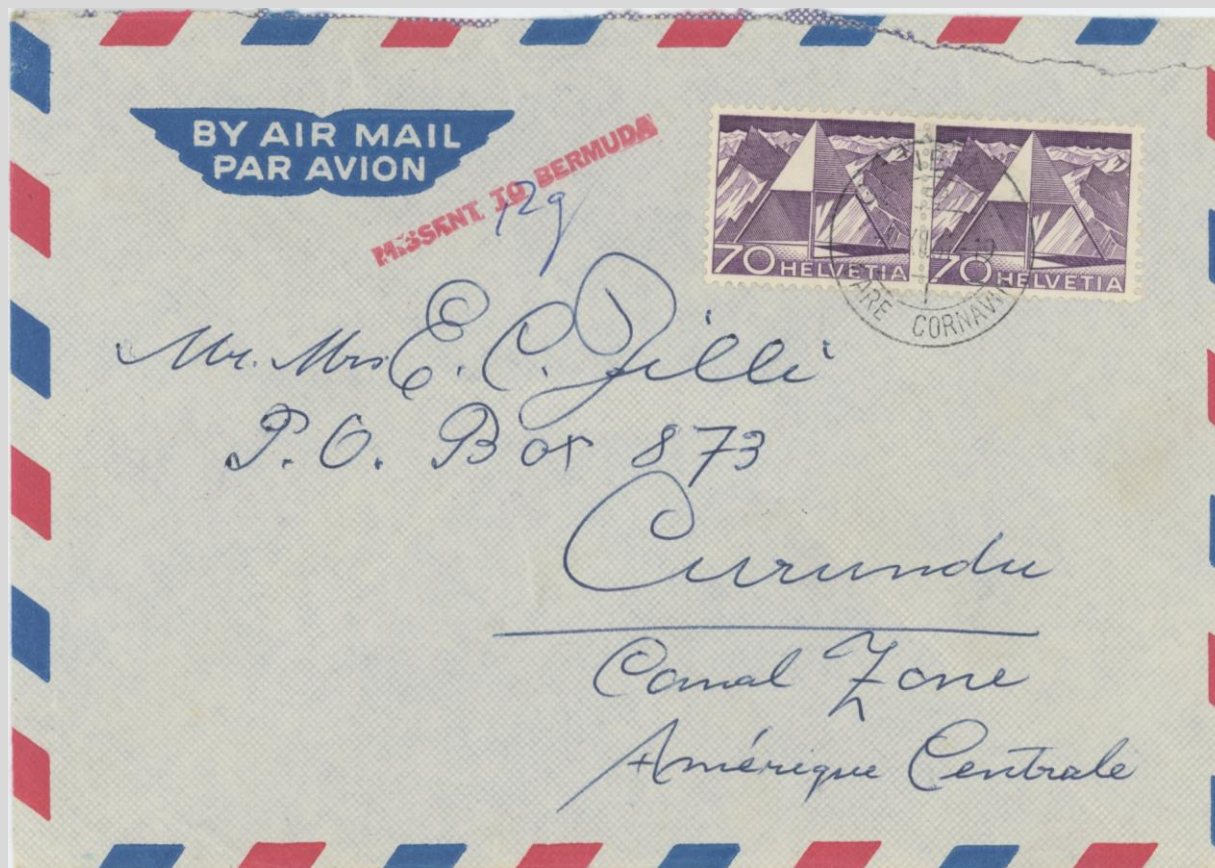 BY AIR MAIL
PAR AVION
MISSENT TO BERMUDA
12g
70 HELVETIA
70 HELVETIA
GARE CORNAVIN
Mr. Mrs E. C. Jilli
P.O. Box 873
Curundu
Canal Zone
Amérique Centrale